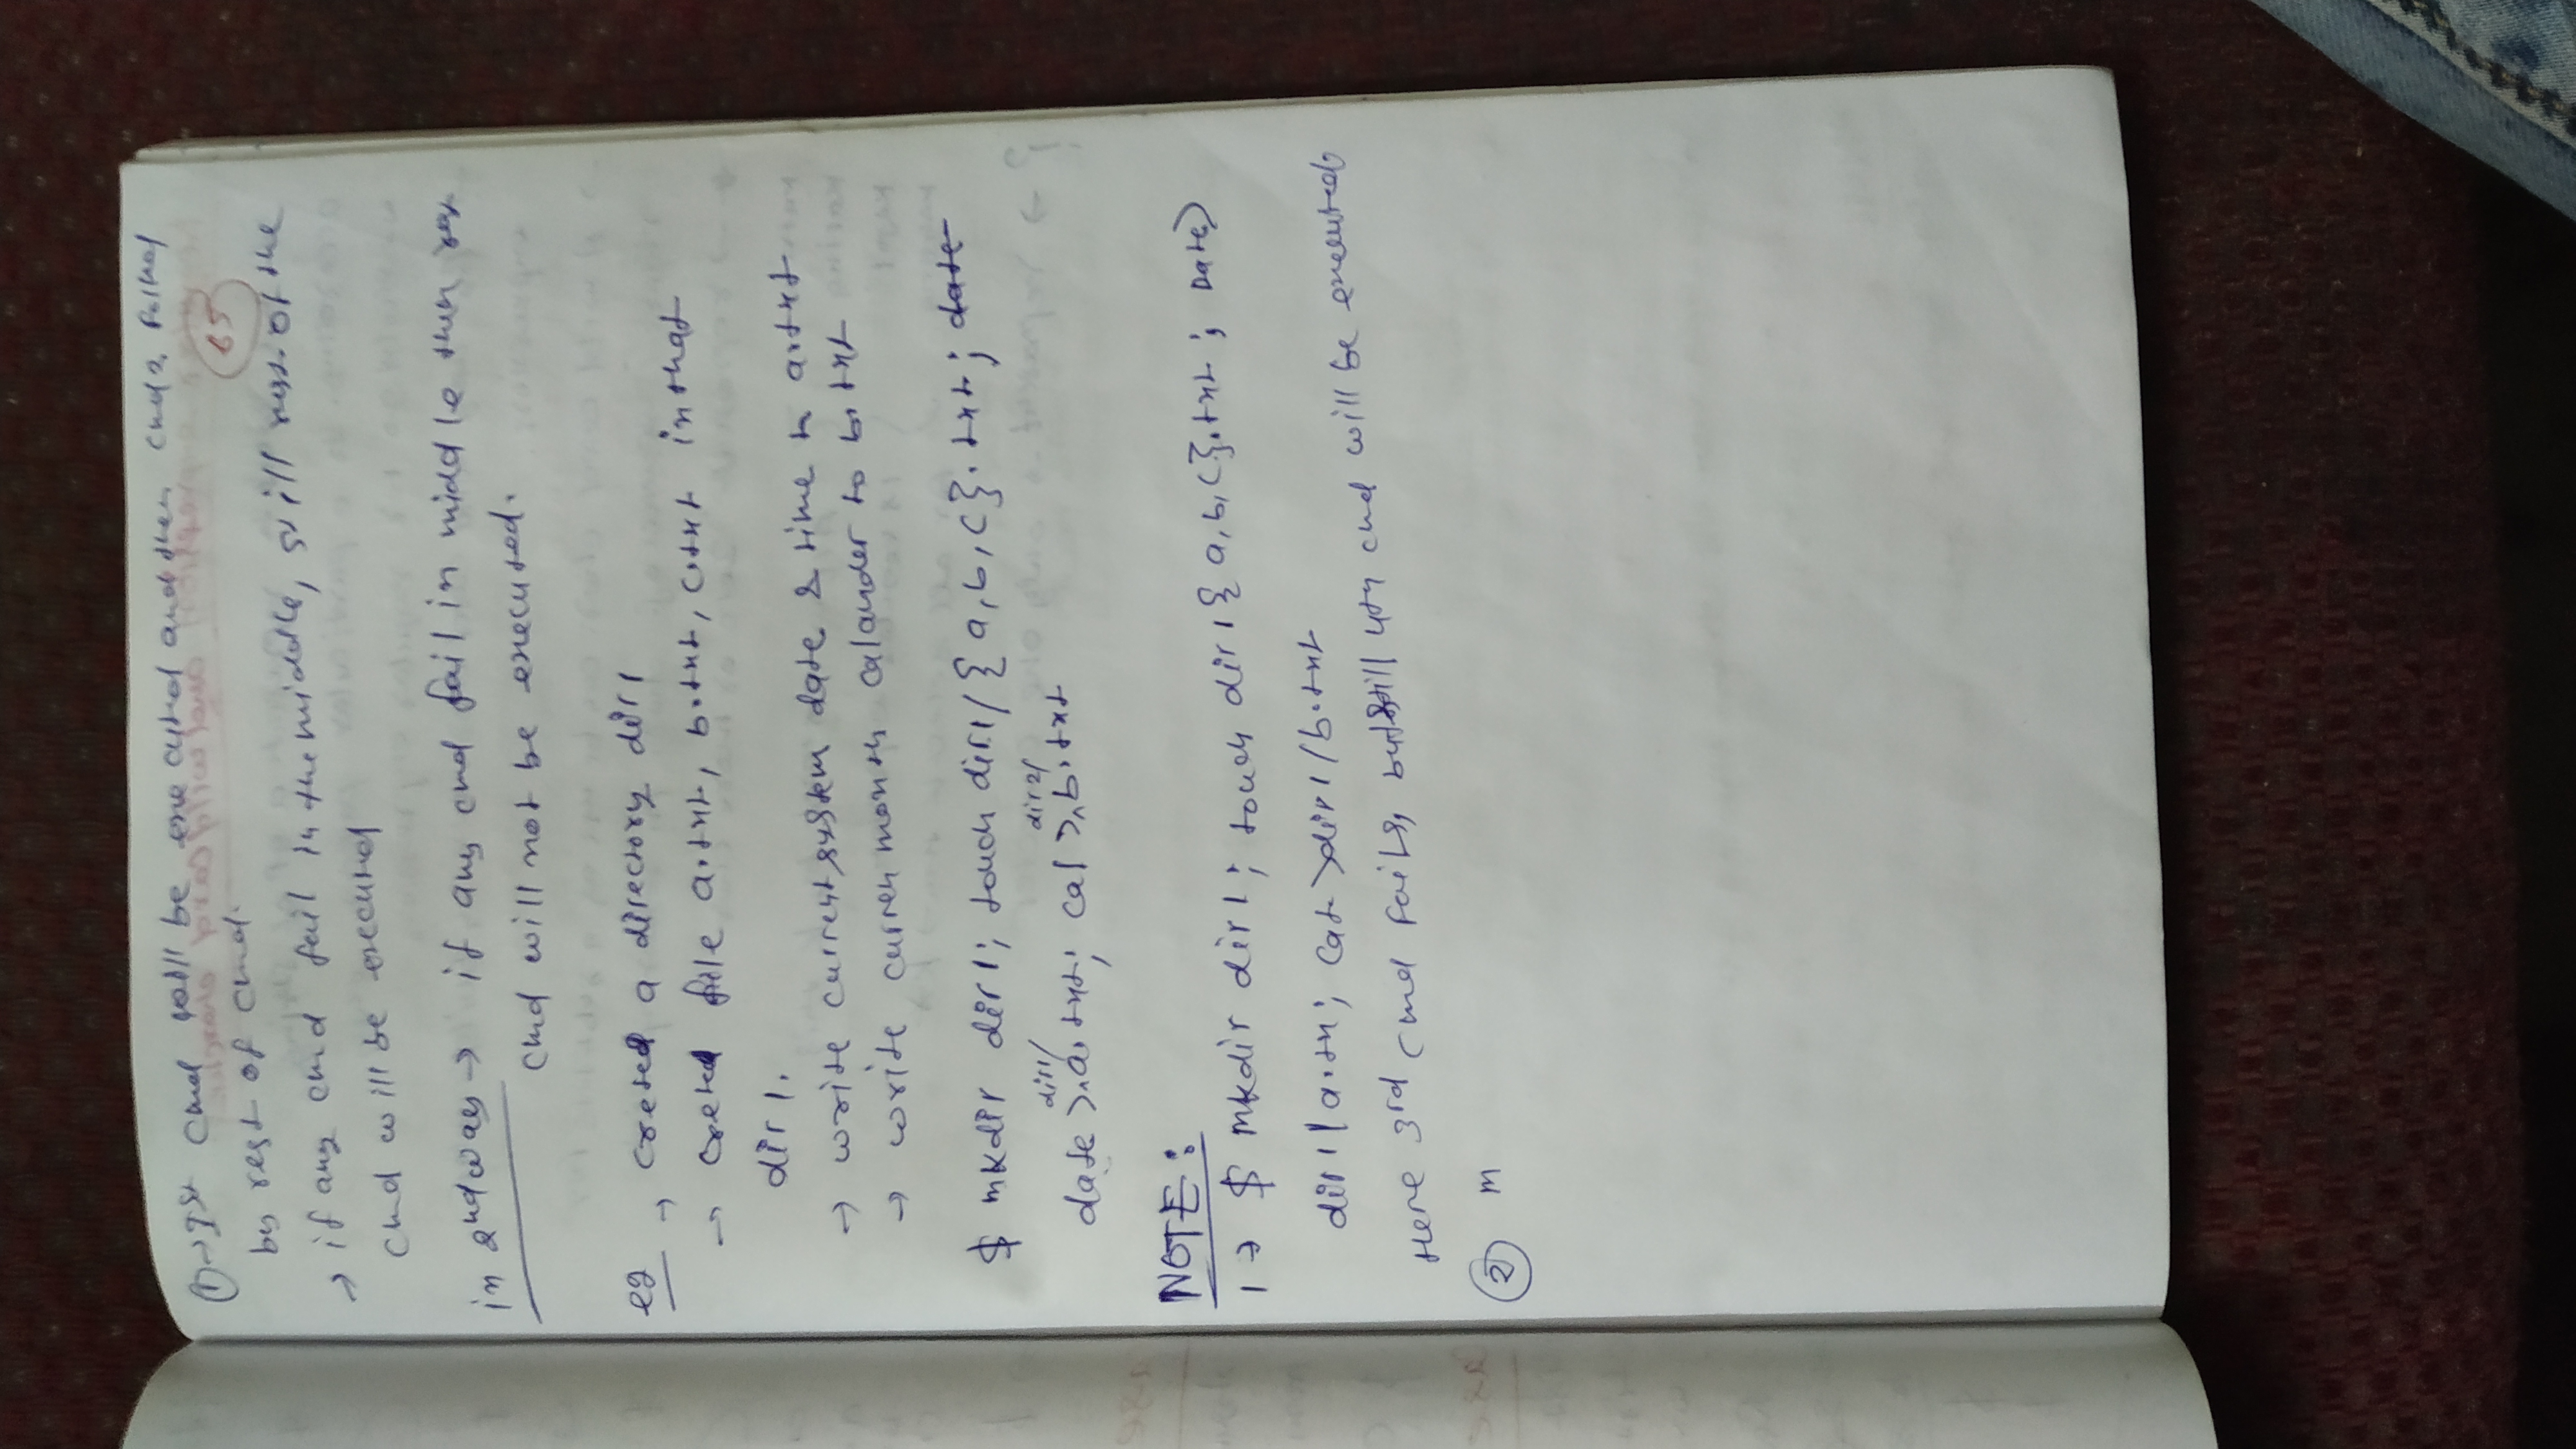 ① → 1st cmd will be executed and then cmd2 follwd
by rest of cmd.
65
→ if any cmd fail in the middle, still rest of the
cmd will be executed
in 2nd way → if any cmd fail in middle then rest
cmd will not be executed.
eg → created a directory dir1
→ creatd file a.txt, b.txt, c.txt in that
dir1.
→ write current system date & time to a.txt
→ write curren month calander to b.txt
$ mkdir dir1; touch dir1/{a,b,c}.txt; date
date > dir1/a.txt; cal > dir2/b.txt
NOTE:
1 → $ mkdir dir1; touch dir1{a,b,c}.txt; nate >
dir1/a.txt; cat >dir1/b.txt
Here 3rd cmd fails, but still 4th cmd will be executed.
② m